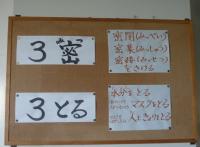 3密
密閉(みっぺい)
密集(みっしゅう)
密接(みっせつ)
をさける
3とる
水分をとる
マスクをとる
人ときょりをとる